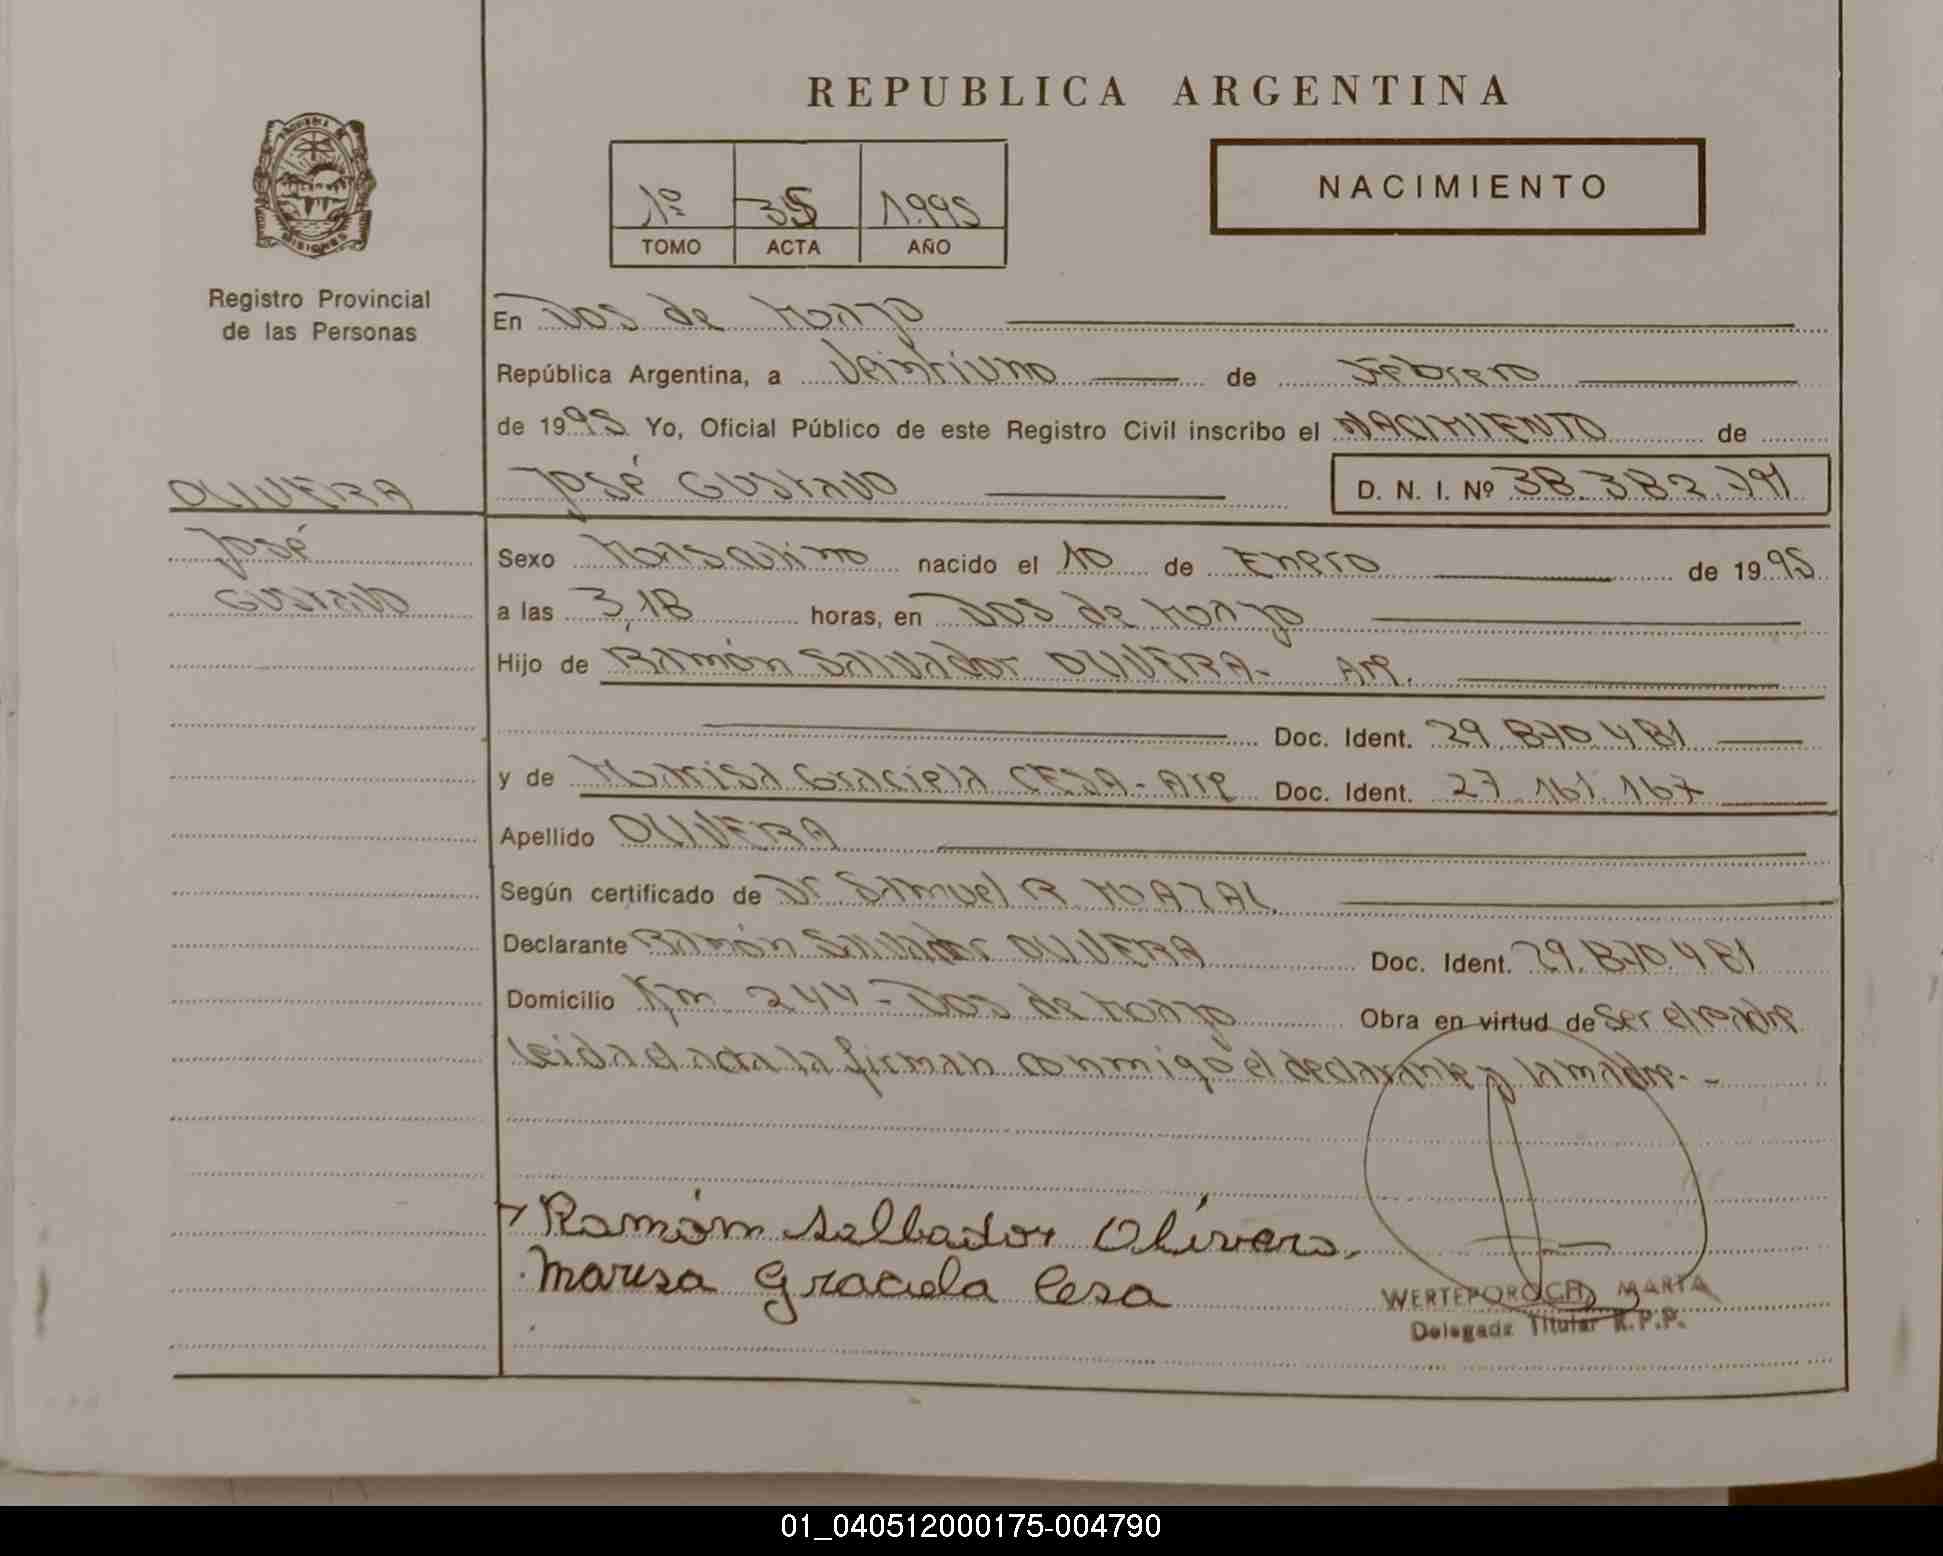 REPUBLICA ARGENTINA
1º 35 1995
TOMO ACTA AÑO
NACIMIENTO
PROVINCIA DE
MISIONES
Registro Provincial
de las Personas
OLIVERA
José
Gustavo
En Dos de Mayo
República Argentina, a Veintiuno de Febrero
de 1995 Yo, Oficial Público de este Registro Civil inscribo el NACIMIENTO de
José Gustavo D. N. I. Nº 38.382.791
Sexo Masculino nacido el 10 de Enero de 1995
a las 3,18 horas, en Dos de Mayo
Hijo de Ramón Salvador OLIVERA- Arg.
Doc. Ident. 29.870.481
y de Marisa Graciela CESA- Arg Doc. Ident. 27.161.167
Apellido OLIVERA
Según certificado de Dr. Samuel R.
Declarante Ramón Salvador OLIVERA Doc. Ident. 29.870.481
Domicilio Km 244 - Dos de Mayo Obra en virtud de Ser el padre
Leida el acta la firman conmigo el declarante y la madre.-
Ramóm Salbador Olivera.
Marisa Graciela Cesa
WERTEPOROCH, MARTA
Delegada Titular R.P.P.
01_040512000175-004790